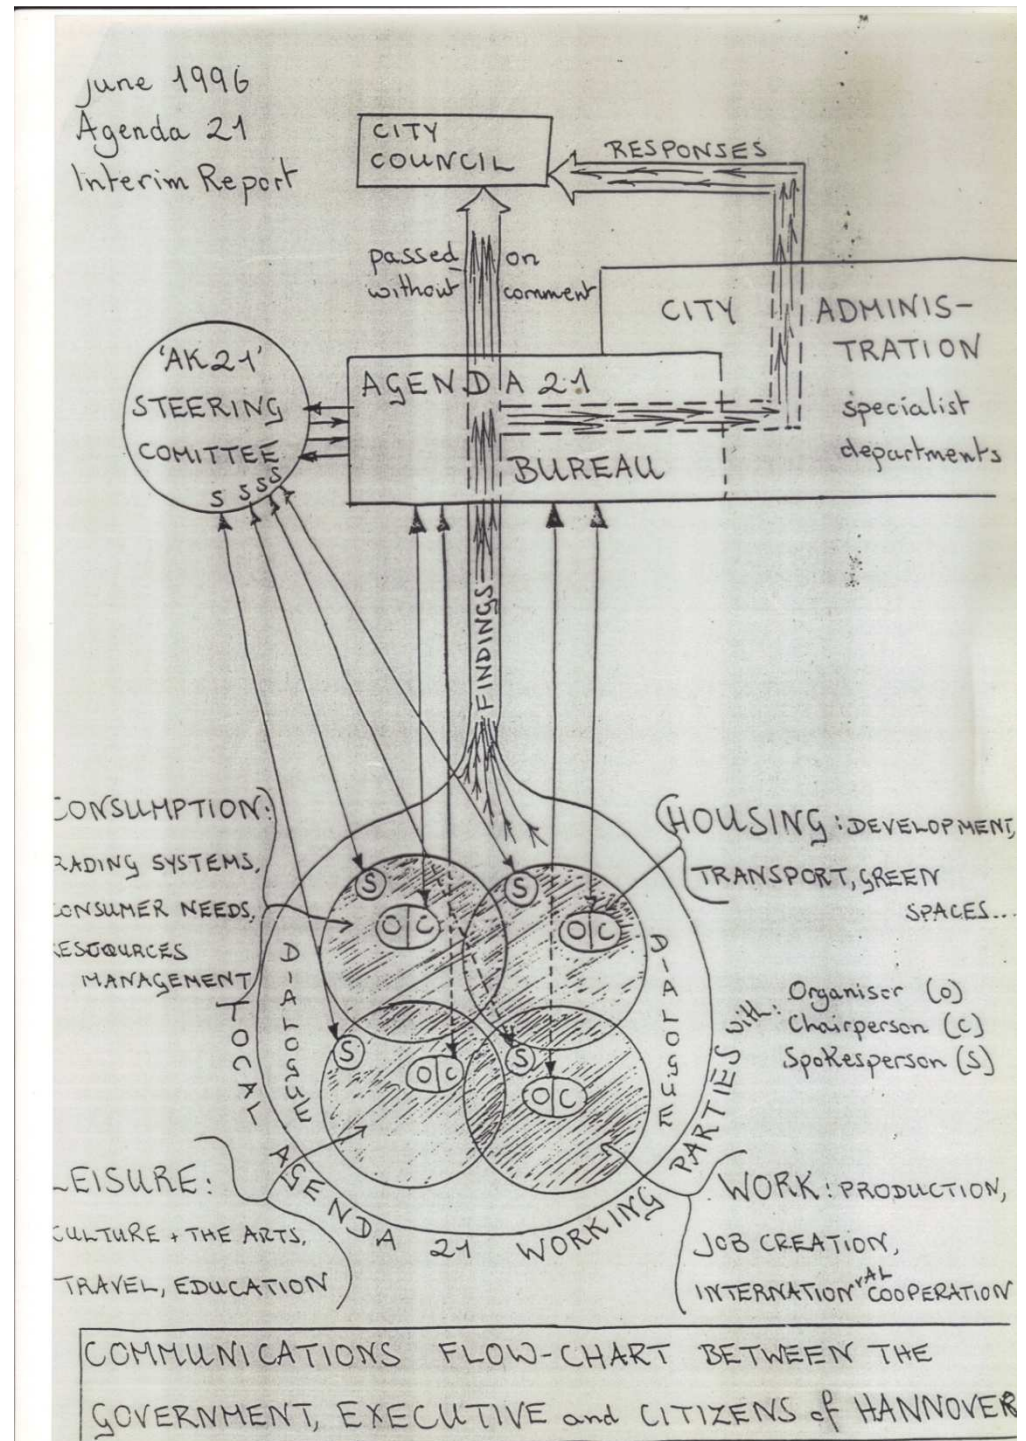 june 1996
Agenda 21
Interim Report
CITY
COUNCIL
RESPONSES
passed on
without comment
CITY ADMINIS-
TRATION
specialist
departments
'AK21'
STEERING
COMITTEE
S S S S
AGENDA 21
BUREAU
FINDINGS
CONSUMPTION:
RADING SYSTEMS,
ONSUMER NEEDS,
RESOURCES
MANAGEMENT
HOUSING: DEVELOPMENT,
TRANSPORT, GREEN
SPACES...
S
O C
S
O C
S
O C
S
O C
DIALOGUE
DIALOGUE
LOCAL AGENDA 21 WORKING PARTIES with:
Organiser (O)
Chairperson (C)
Spokesperson (S)
LEISURE:
CULTURE + THE ARTS,
TRAVEL, EDUCATION
WORK: PRODUCTION,
JOB CREATION,
INTERNATIONAL COOPERATION
COMMUNICATIONS FLOW-CHART BETWEEN THE
GOVERNMENT, EXECUTIVE and CITIZENS of HANNOVER